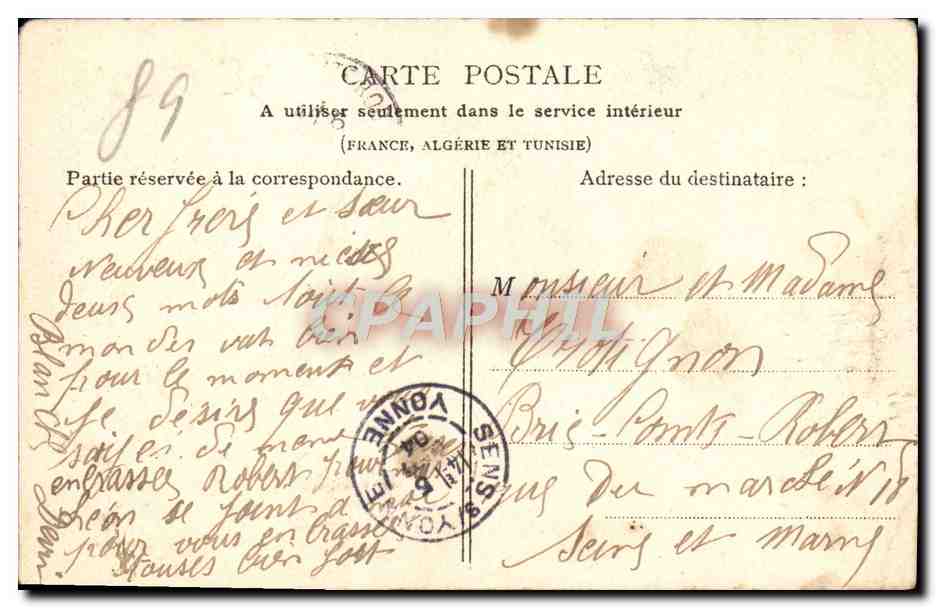 89
CARTE POSTALE
A utiliser seulement dans le service intérieur
(FRANCE, ALGÉRIE ET TUNISIE)
Partie réservée à la correspondance.
Adresse du destinataire :
Cher frere et sœur
Neuveux et nieces
deux mots tout le
mon de vat bien
pour le moment et
je désire que vous
soiyes de meme
enbrasses Robert pour
Léon se joint a
pour vous enbrasse
touses bien fort
Blanche
M onsieur et Madame
Brie-Comte-Robert
rue Du marché N 18
Seine et Marne
SENS-S/YONNE
YONNE
5
04
CPAPHIL